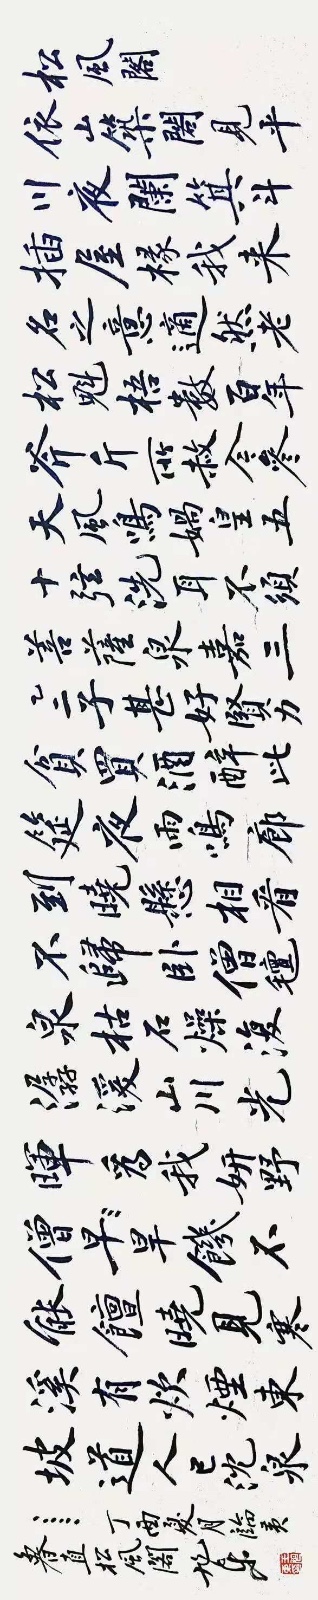 松風閣
依山築閣見平
川夜闌箕斗
插屋椽我来
名之意適然老
松魁梧數百年
斧斤所赦今參
天風鳴媧皇五
十弦洗耳不須
菩薩泉嘉三
二子甚好賢力
貧買酒醉此
筵夜雨鳴廊
到曉懸相看
不歸卧僧氈
泉枯石燥復
潺湲山川光
暉為我妍野
僧早旱饑不
能饘曉見寒
溪有炊煙東
坡道人已沈泉
…… 丁酉夏月臨黃
魯直松風閣